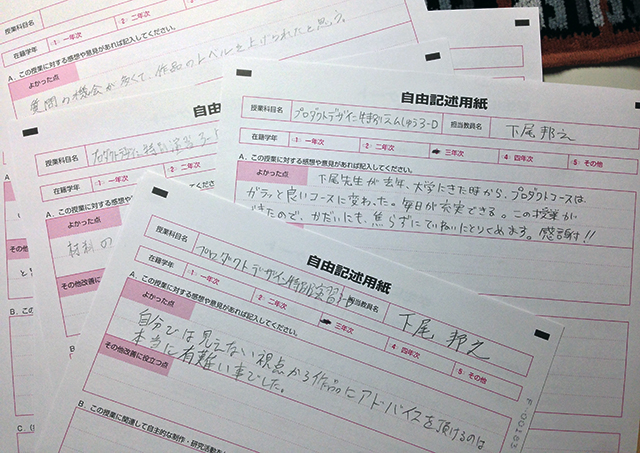 授業科目名
在籍学年
1:一年次
2:二年次
A. この授業に対する感想や意見があれば記入してください。
よかった点
質問の機会が多くて、作品のレベルを上げられたと思う。
自由記述用紙
授業科目名
在籍学年
1:一年次
A. この授業に対する感想や意見があれば
よかった点
材料の
その他改善に
B.
C.
自由記述用紙
授業科目名
プロダクトデザイン特別えんしゅう3-D
担当教員名
下尾邦之
在籍学年
1:一年次
2:二年次
三年次
4:四年次
5:その他
A. この授業に対する感想や意見があれば記入してください。
よかった点
下尾先生が去年、大学にきた時から、プロダクトコースは、
ガラッと良いコースに変わった。毎日が充実できる。この授業が
できたので、かだいにも、焦らずにていねいにとりくめます。感謝!!
自由記述用紙
授業科目名
プロダクトデザイン特別演習3-D
担当教員名
下尾 邦之
在籍学年
1:一年次
2:二年次
三年次
4:四年次
5:その他
A. この授業に対する感想や意見があれば記入してください。
よかった点
自分では見えない視点から作品にアドバイスを頂けるのは
本当に有難い事でした。
その他改善に役立つ点
F-00283
B. この授業に関連して自主的な制作・研究活動を